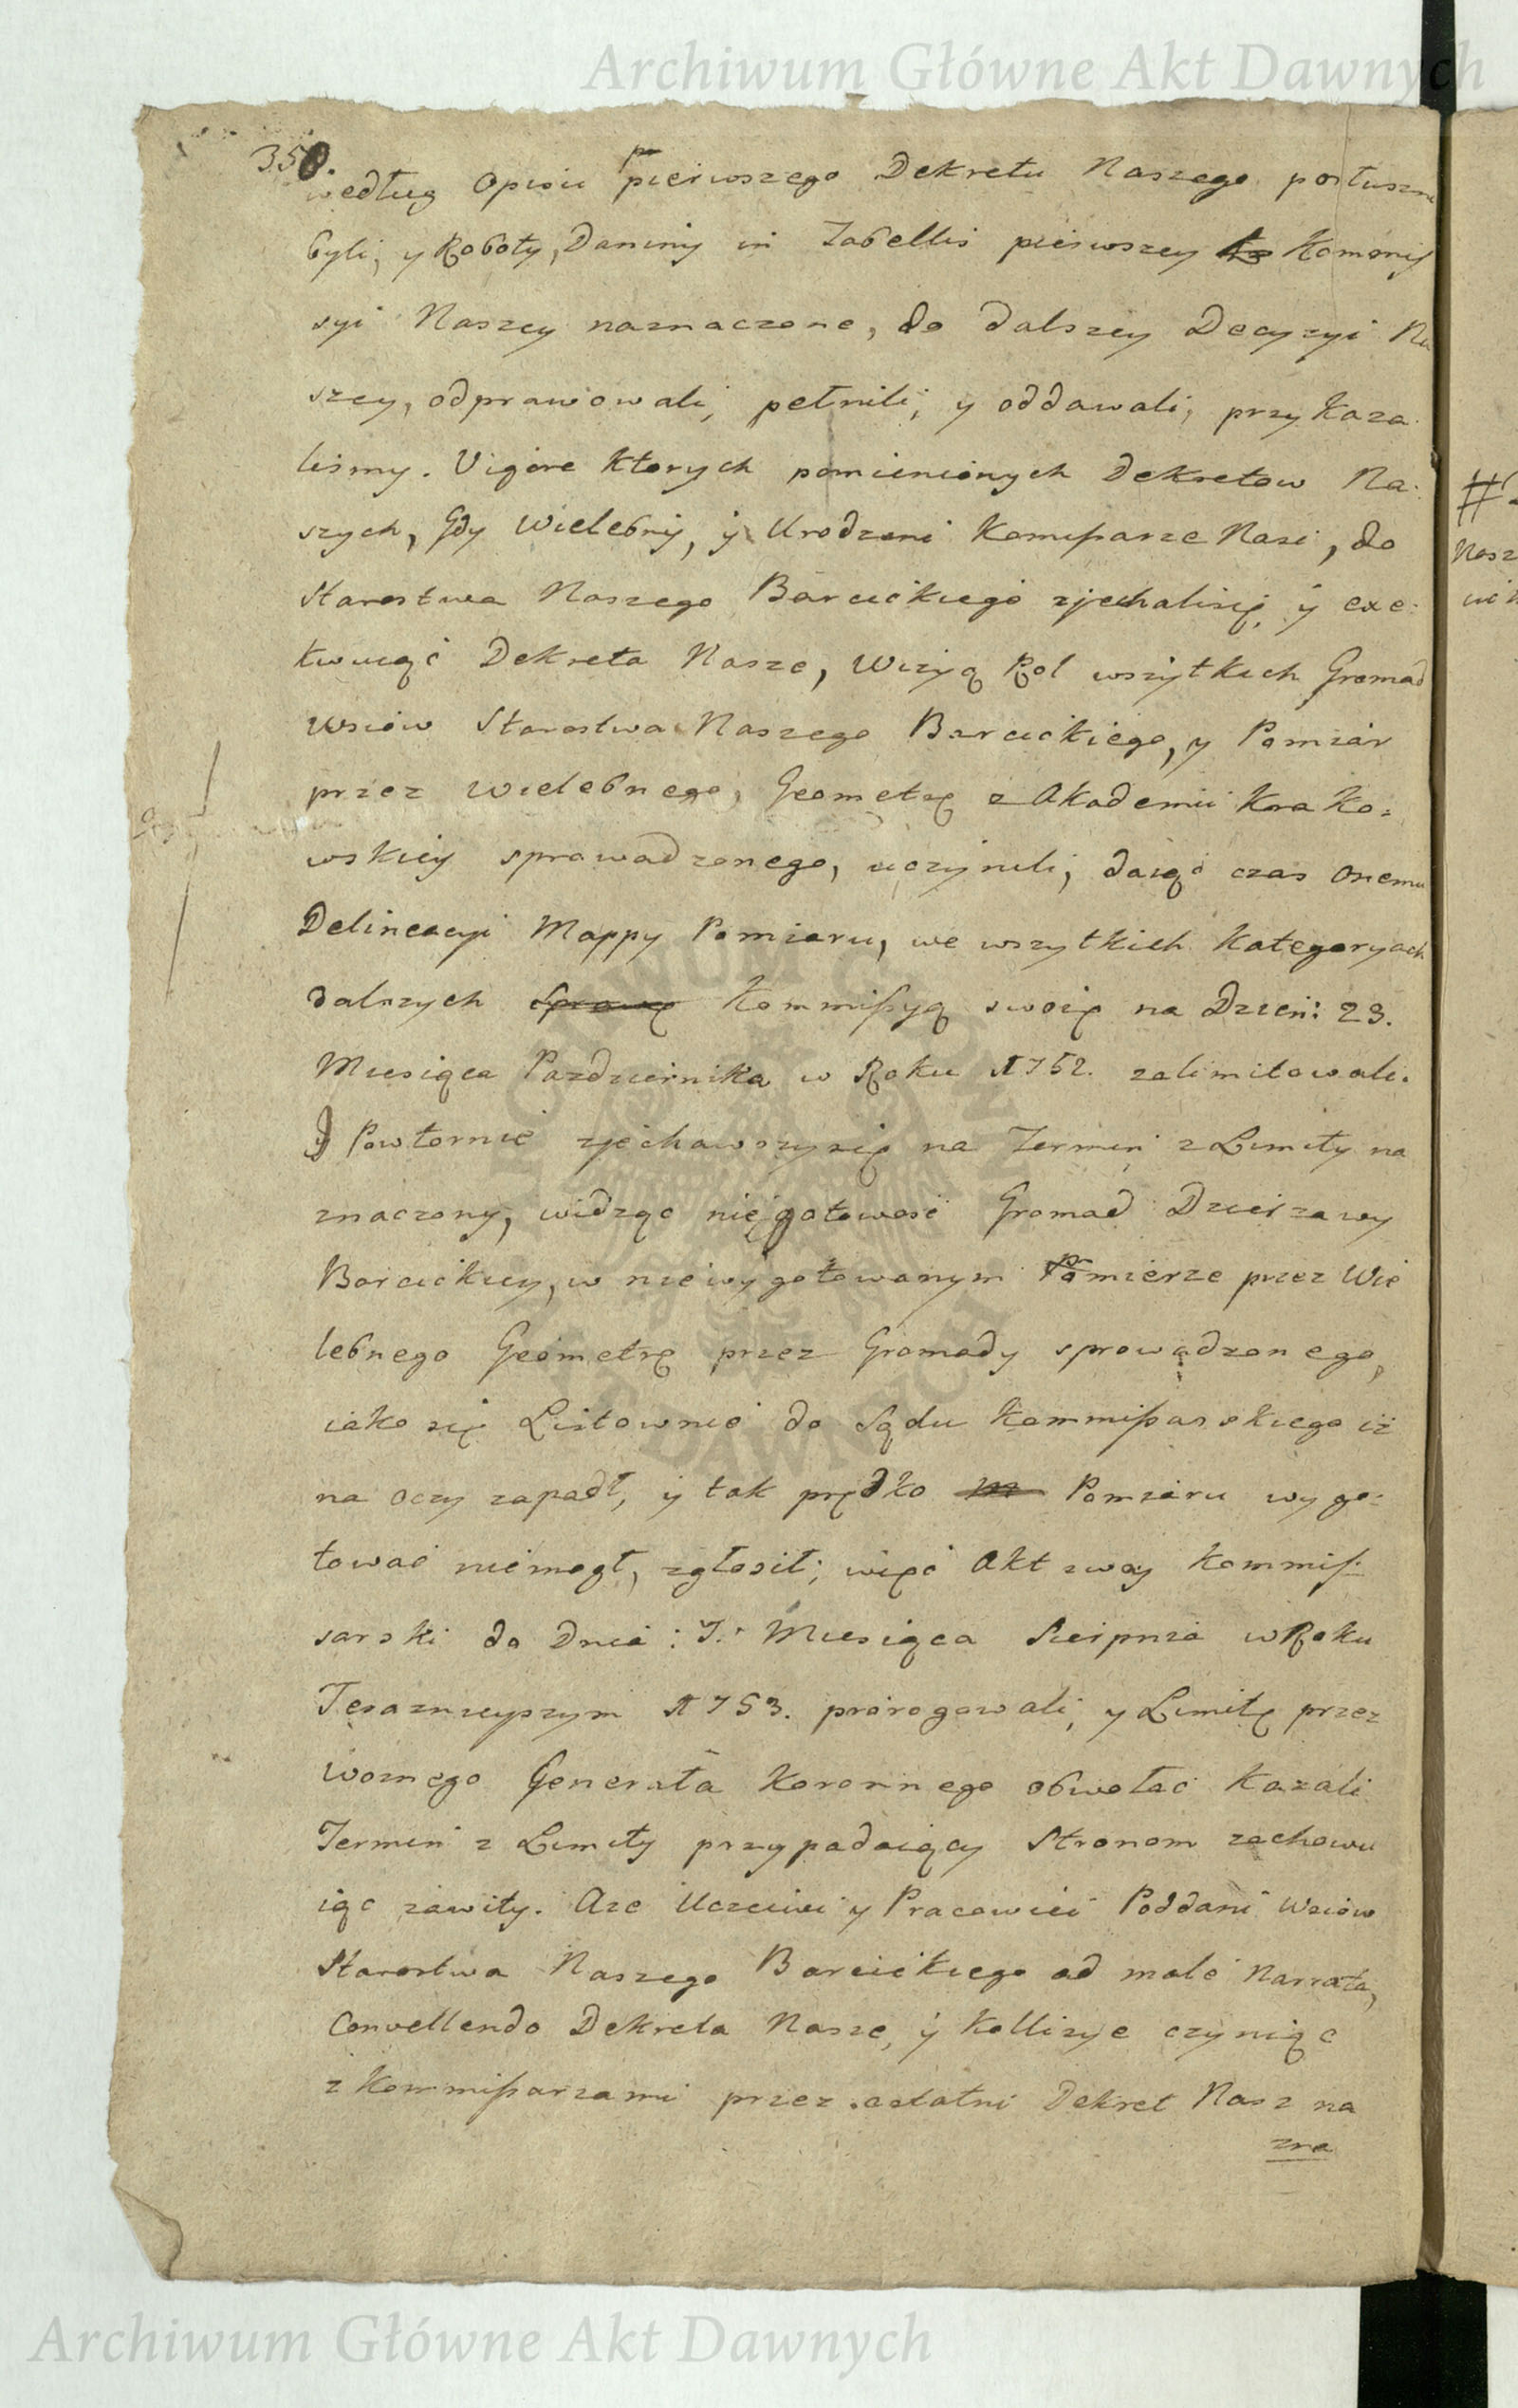 Archiwum Główne Akt Dawnych
350.
według Opisu pierwszego Dekretu Naszego posłuszni
byli, y Roboty, Daniny in Tabellis pierwszey Kommis
syi Naszey naznaczone, do dalszey Decyzyi Na
szey, odprawowali, pełnili, y oddawali, przykaza
liśmy. Vigore Ktorych pomienionych Dekretow Na:
szych, Gdy Wielebny, y Urodzeni Komissarze Nasi, do
Starostwa Naszego Barcickiego zjechalisię, y exe:
kwuiąc Dekreta Nasze, Wizyą Rol wszytkich Gromad
Wsiow Starostwa Naszego Barcickiego, y Pomiar
przez Wielebnego, Geometrę z Akademii Krako:
wskiey sprowadzonego, uczynili, daiąc czas Onemu
Delineacyi Mappy Pomiaru, we wszytkich Kategoryach
dalszych Sprawę Kommissyą swoię na Dzień: 23.
Miesiąca Pazdziernika w Roku 1752. zalimitowali.
Y Powtornie zjechawszysię na Termin z Limity na
znaczony, widząc nięgotowość Gromad Dzierzawy
Barcickiey, w niewygotowanym Pomierze przez Wie
lebnego Geometrę przez Gromady sprowadzonego,
iako się Listownie do Sądu Kommissarskiego iż
na Oczy zapadł, y tak prędko Pomiaru wygo:
tować niemogł, zgłosił; więc Akt swoy Kommis
sarski do Dnia: 7. Miesiąca Sierpnia w Roku
Teraznieyszym 1753. prorogowali, y Limitę przez
woznego Generała Koronnego obwołać Kazali
Termin z Limity przypadaiący Stronom zachowu
iąc zawity. Aze Uczciwi y Pracowici Poddani Wsiow
Starostwa Naszego Barcickiego ad male Narrata,
Convellendo Dekreta Nasze, y Kollizye czyniąc
z Kommissarzami przez ostatni Dekret Nasz na
zna
Nasz
Archiwum Główne Akt Dawnych